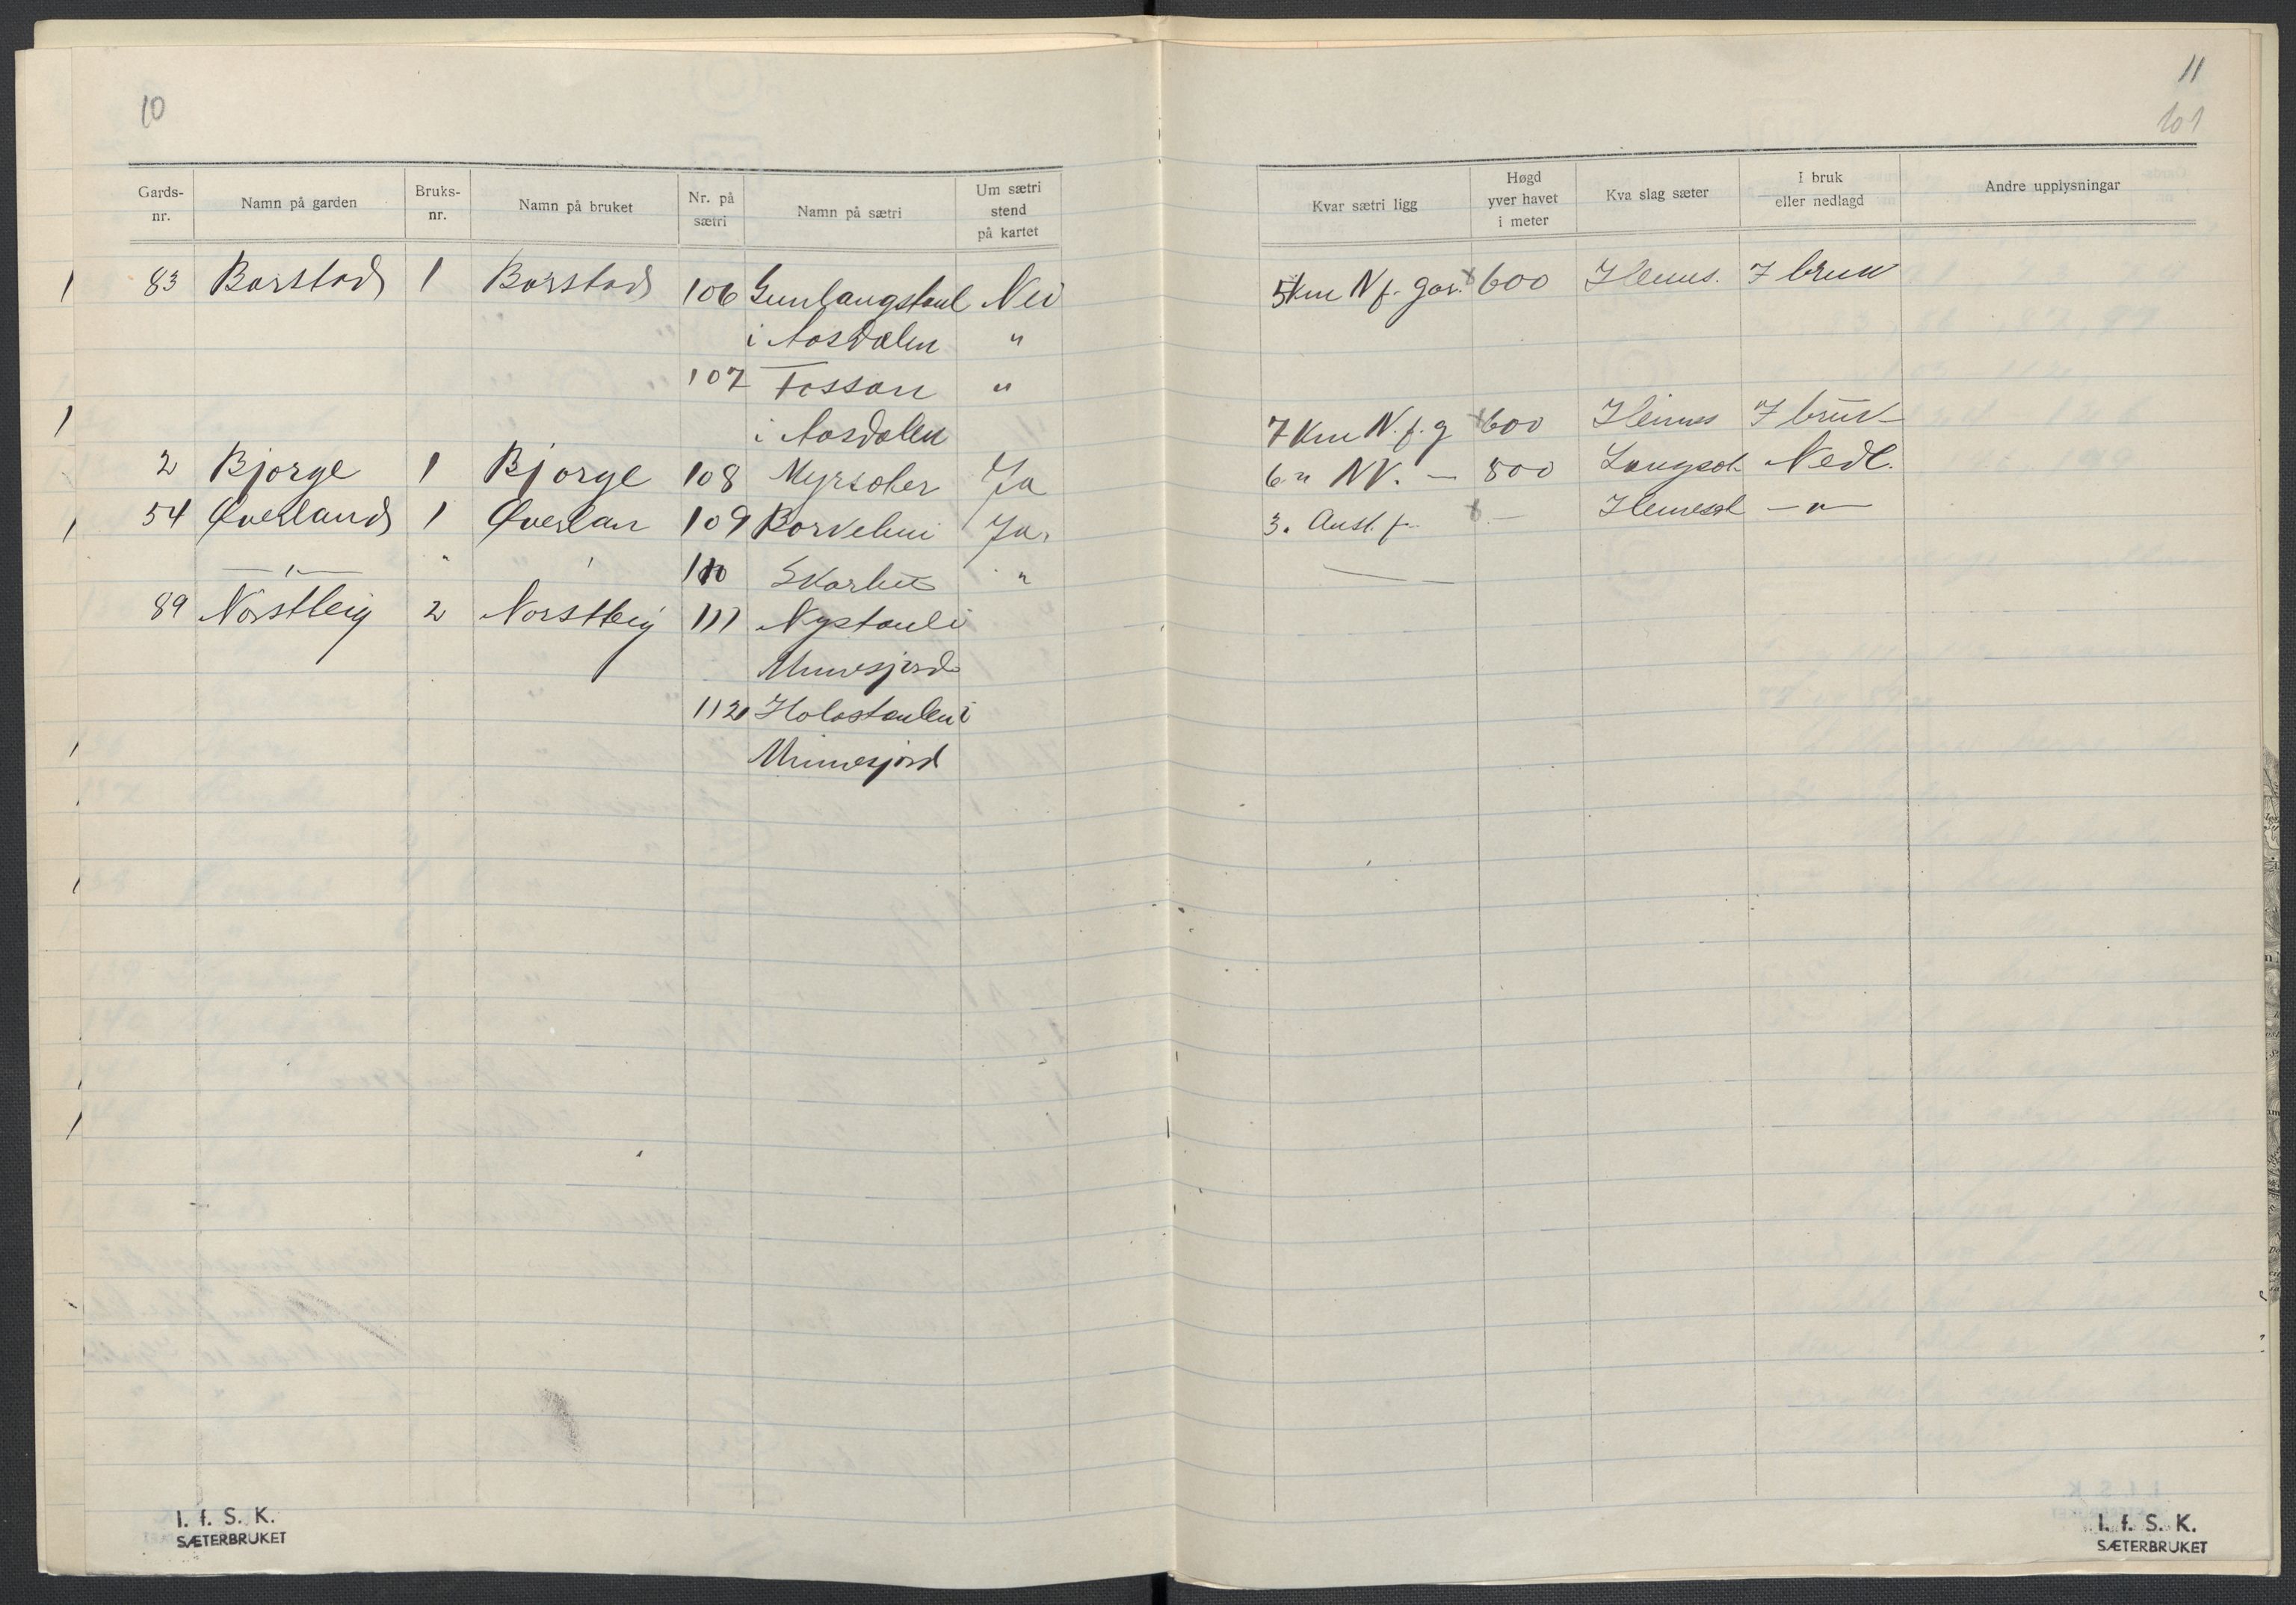 10
Gards-nr. Namn på garden Bruks-nr. Namn på bruket Nr. på sætri Namn på sætri Um sætri stend på kartet
83 Barstad 1 Barstad 106 Gunlaugstaul Nei
i Aasdalen "
107 Fossan "
i Aasdalen
2 Bjorge 1 Bjorge 108 Myrsæter Ja
54 Øverland 1 Øverlan 109 Ja.
—"— " " 110 "
89 Nørstbeig 2 Norstbeig 111 Nystaul i
Munesjord
112 Holostaulen i
Munesjord
I. f. S. K.
SÆTERBRUKET
11
101
Kvar sætri ligg Høgd yver havet i meter Kva slag sæter I bruk eller nedlagd Andre upplysningar
5 Km N f. gar. x 600 Heimes. I bruk
7 Km N. f. g x 600 Heimes I bruk
6 " NV. — 800 Langsæt. Nedl.
3. Aust. f. x — Heimesæt —"—
I. f. S. K.
SÆTERBRUKET